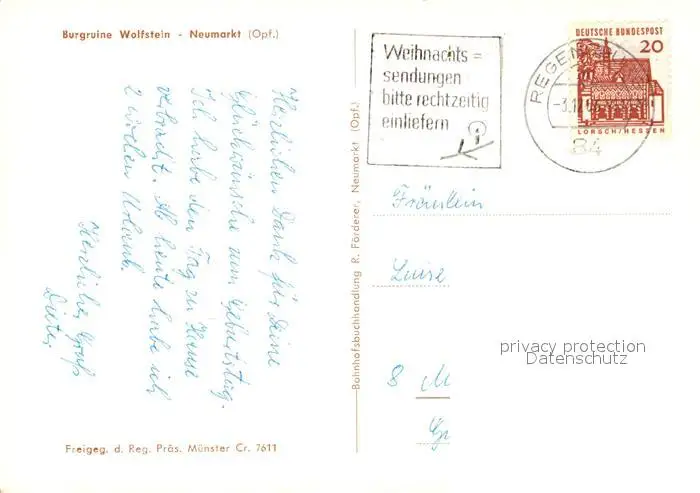 Burgruine Wolfstein - Neumarkt (Opf.)
Herzlichen Dank für Deine
Glückwünsche zum Geburtstag.
Ich habe den Tag zu Hause
verbracht. Ab heute habe ich
2 Wochen Urlaub.
Herzlicher Gruß
Dieter
Freigeg. d. Reg. Präs. Münster Cr. 7611
Bahnhofsbuchhandlung R. Förderer, Neumarkt (Opf.)
Weihnachts=
sendungen
bitte rechtzeitig
einliefern
REGEN
-3.12
84
DEUTSCHE BUNDESPOST
20
LORSCH/HESSEN
Fräulein
Luise
8 M
privacy protection
Datenschutz